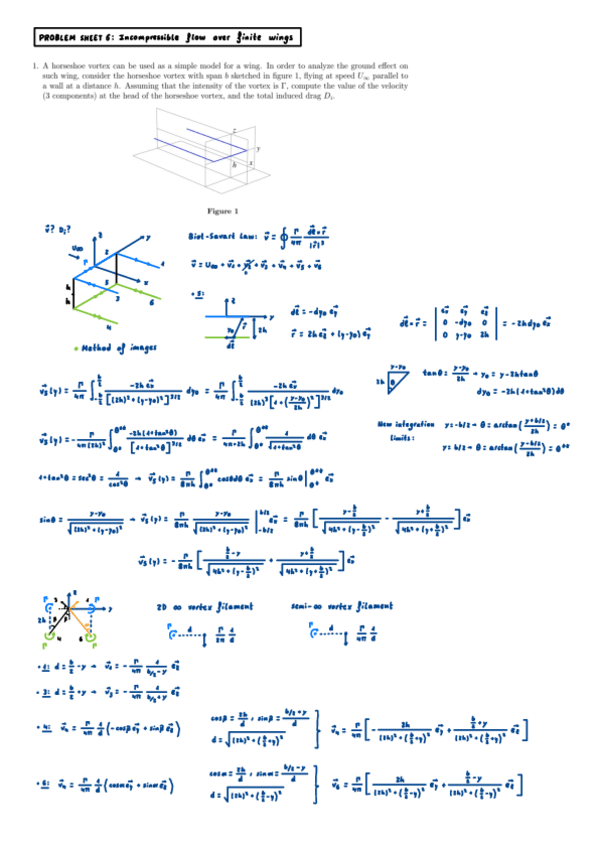 PROBLEM SHEET 6: Incompressible flow over finite wings
1. A horseshoe vortex can be used as a simple model for a wing. In order to analyze the ground effect on
such wing, consider the horseshoe vortex with span b sketched in figure 1, flying at speed U∞ parallel to
a wall at a distance h. Assuming that the intensity of the vortex is Γ, compute the value of the velocity
(3 components) at the head of the horseshoe vortex, and the total induced drag Di.
z
y
h
x
Figure 1
v⃗? Di?
Biot-Savart Law: v⃗ = ∮ Γ/4π dl⃗ × r⃗ / |r⃗|³
• Method of images
• 5:
dl⃗ = -dy₀ e⃗y
r⃗ = 2h e⃗z + (y-y₀) e⃗y
dl⃗ × r⃗ = | e⃗x e⃗y e⃗z ; 0 -dy₀ 0 ; 0 y-y₀ 2h | = -2h dy₀ e⃗x
v⃗₅(y) = Γ/4π ∫ -2h e⃗x / [(2h)² + (y-y₀)²]^3/2 dy₀ = Γ/4π ∫ -2h e⃗x / (2h)³ [1 + ((y-y₀)/2h)²]^3/2 dy₀
tanθ = (y-y₀)/2h → y₀ = y - 2h tanθ
dy₀ = -2h (1 + tan²θ) dθ
New integration limits:
y = -b/2 → θ = arctan((y+b/2)/2h) = θ*
y = b/2 → θ = arctan((y-b/2)/2h) = θ**
1 + tan²θ = sec²θ = 1/cos²θ → v⃗₅(y) = Γ/8πh ∫ cosθ dθ e⃗x = Γ/8πh sinθ | e⃗x
sinθ = (y-y₀)/√((2h)² + (y-y₀)²) → v⃗₅(y) = Γ/8πh (y-y₀)/√((2h)² + (y-y₀)²) | e⃗x = Γ/8πh [ (y-b/2)/√(4h² + (y-b/2)²) - (y+b/2)/√(4h² + (y+b/2)²) ] e⃗x
v⃗₅(y) = - Γ/8πh [ (b/2-y)/√(4h² + (y-b/2)²) + (y+b/2)/√(4h² + (y+b/2)²) ] e⃗x
2D ∞ vortex filament
Semi-∞ vortex filament
Γ/2π 1/d
Γ/4π 1/d
• 1: d = b/2 - y → v⃗₁ = - Γ/4π 1/(b/2-y) e⃗z
• 3: d = b/2 + y → v⃗₃ = - Γ/4π 1/(b/2+y) e⃗z
• 4: v⃗₄ = Γ/4π 1/d (-cosβ e⃗y + sinβ e⃗z)
cosβ = 2h/d, sinβ = (b/2+y)/d
d = √((2h)² + (b/2+y)²)
v⃗₄ = Γ/4π [ - 2h/((2h)² + (b/2+y)²) e⃗y + (b/2+y)/((2h)² + (b/2+y)²) e⃗z ]
• 6: v⃗₄ = Γ/4π 1/d (cosα e⃗y + sinα e⃗z)
cosα = 2h/d, sinα = (b/2-y)/d
d = √((2h)² + (b/2-y)²)
v⃗₆ = Γ/4π [ 2h/((2h)² + (b/2-y)²) e⃗y + (b/2-y)/((2h)² + (b/2-y)²) e⃗z ]